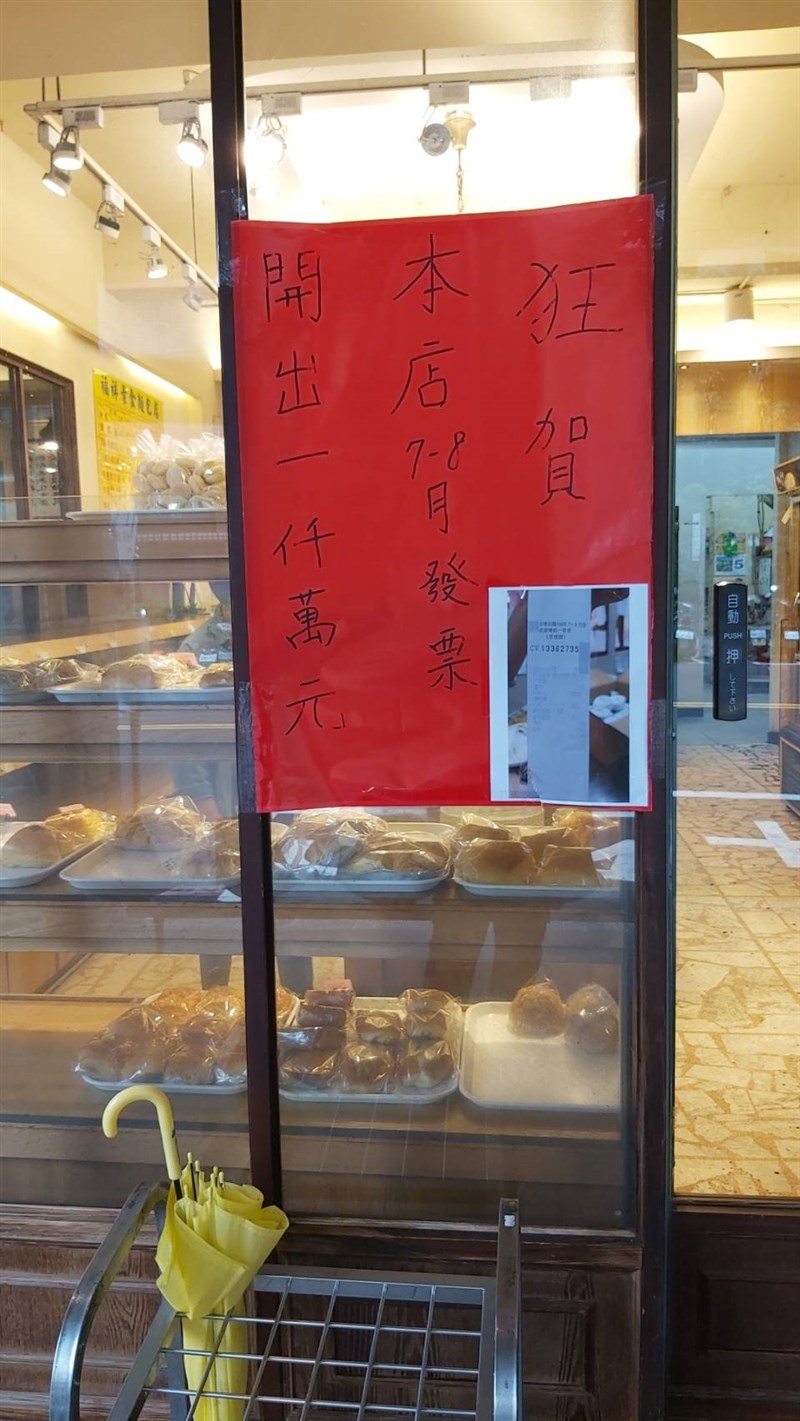 狂賀
本店7-8月發票
開出一仟萬元
CV13362795
自動
PUSH
押
して下さい
5